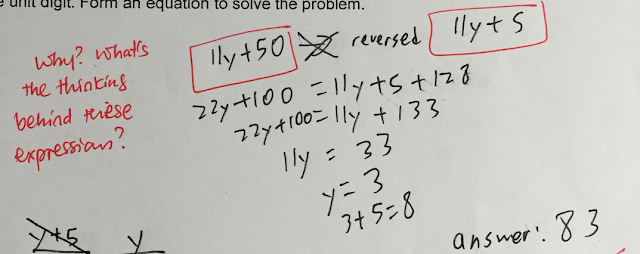 e unit digit. Form an equation to solve the problem.
Why? What's
the thinking
behind these
expression?
11y+50 reversed 11y+5
22y+100=11y+5+128
22y+100=11y+133
11y=33
y=3
3+5=8
y+5 y
answer: 83